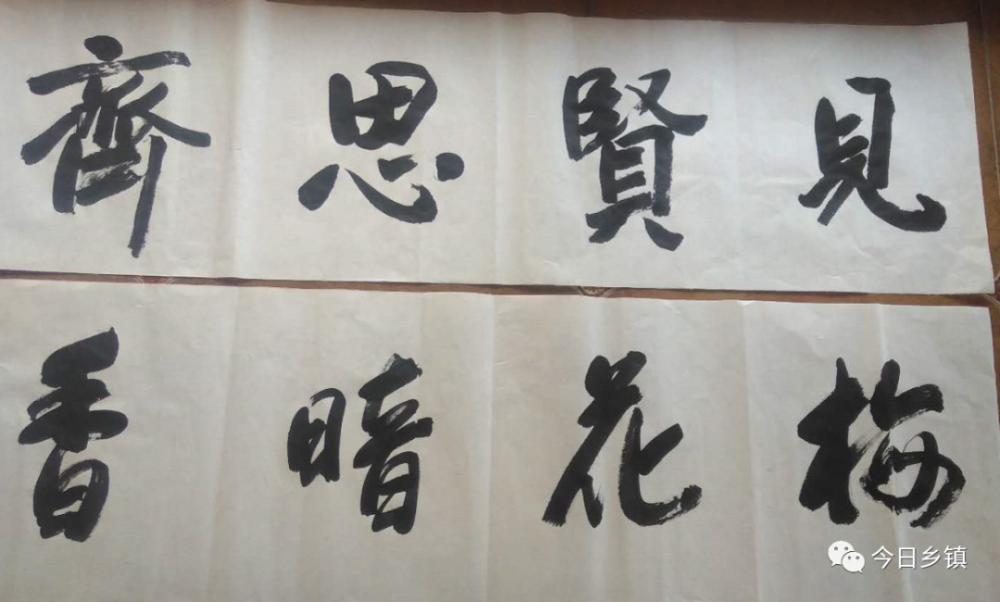 見賢思齊
梅花暗香
今日乡镇